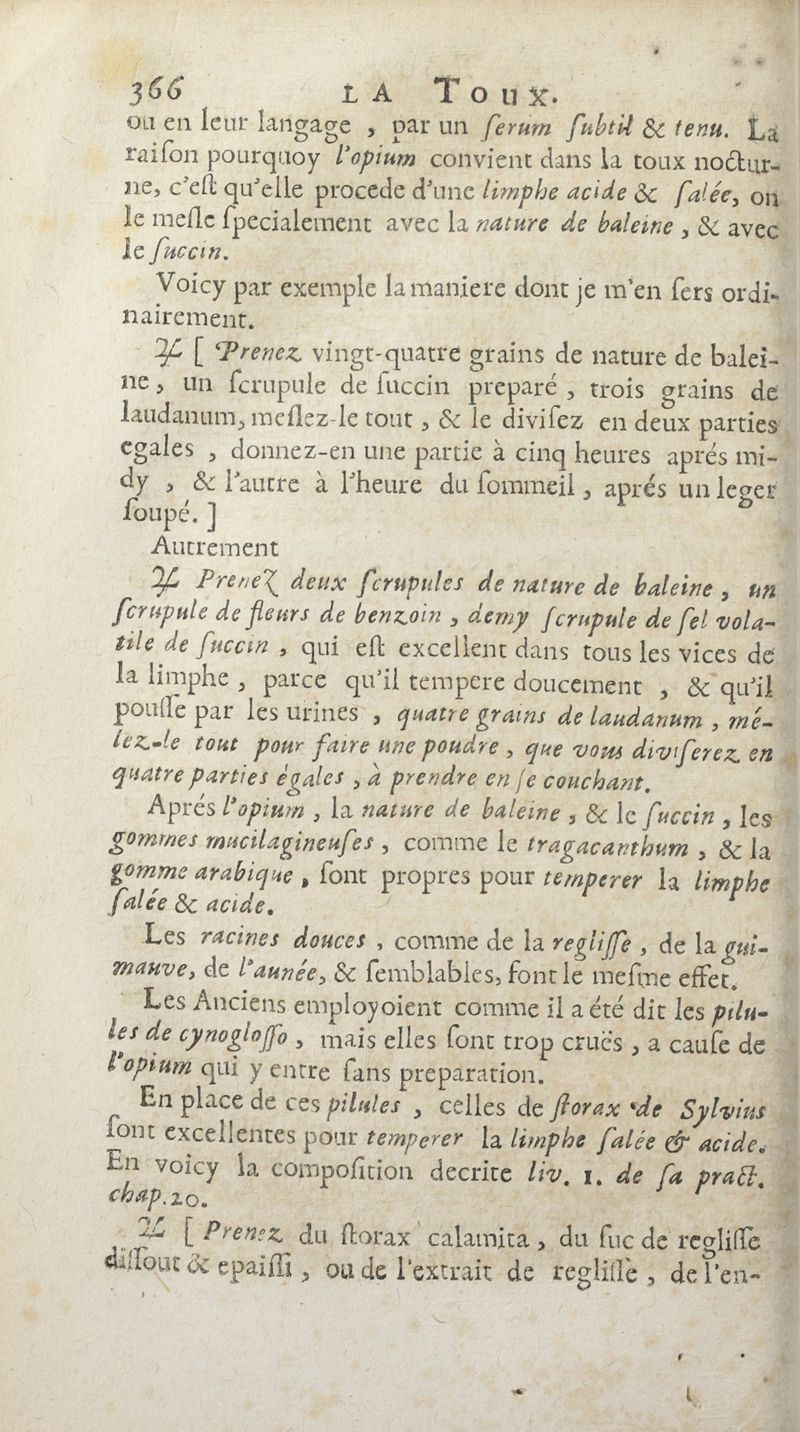 366 LA Toux.
ou en leur langage , par un ſerum ſubtil & tenu. La
raiſon pourquoy l'opium convient dans la toux noctur-
ne, c'eſt qu'elle procede d'une limphe acide & ſalée, on
le meſle ſpecialement avec la nature de baleine , & avec
le ſuccin.
Voicy par exemple la maniere dont je m'en ſers ordi-
nairement.
♃ [ Prenez vingt-quatre grains de nature de balei-
ne, un ſcrupule de ſuccin preparé , trois grains de
laudanum, meſlez-le tout , & le diviſez en deux parties
egales , donnez-en une partie à cinq heures aprés mi-
dy , & l'autre à l'heure du ſommeil , aprés un leger
ſoupé. ]
Autrement
♃ Prenez deux ſcrupules de nature de baleine , un
ſcrupule de fleurs de benzoin , demy ſcrupule de ſel vola-
tile de ſuccin , qui eſt excellent dans tous les vices de
la limphe , parce qu'il tempere doucement , & qu'il
pouſſe par les urines , quatre grains de laudanum , mé-
lez-le tout pour faire une poudre , que vous diviſerez en
quatre parties égales , à prendre en ſe couchant.
Aprés l'opium , la nature de baleine , & le ſuccin , les
gommes mucilagineuſes , comme le tragacanthum , & la
gomme arabique , ſont propres pour temperer la limphe
ſalée & acide.
Les racines douces , comme de la regliſſe , de la gui-
mauve, de l'aunée, & ſemblables, font le meſme effet.
Les Anciens employoient comme il a été dit les pilu-
les de cynogloſſo , mais elles ſont trop cruës , a cauſe de
l'opium qui y entre ſans preparation.
En place de ces pilules , celles de ſtorax de Sylvius
ſont excellentes pour temperer la limphe ſalée & acide.
En voicy la compoſition decrite liv. 1. de ſa pract.
chap. 20.
♃ [ Prenez du ſtorax calamita , du ſuc de regliſſe
diſſout & epaiſſi , ou de l'extrait de regliſſe , de l'en-